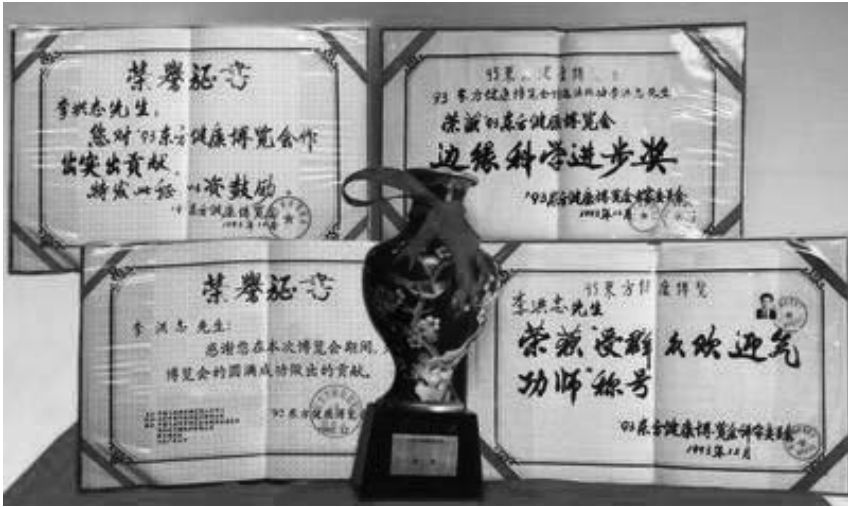 荣誉证书
李洪志先生:
您对'93东方健康博览会作
出突出贡献,
特发此证 以资鼓励。
'93东方健康博览会
1993年12月
93东方健康博览会
李洪志先生
荣获'93东方健康博览会
边缘科学进步奖
'93东方健康博览会评审委员会
1993年12月
荣誉证书
李洪志 先生:
感谢您在本次博览会期间,
博览会的圆满成功做出的贡献。
'93东方健康博览会
93东方健康博览
李洪志先生
荣获"受群众欢迎气
功师"称号
'93东方健康博览会评审委员会
1993年12月